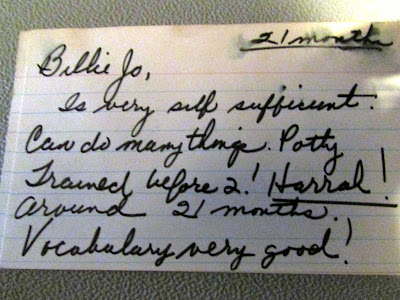 21 months
Billie Jo,
Is very self sufficient.
Can do many things. Potty
Trained before 2! Harral!
around 21 months.
Vocabulary very good!